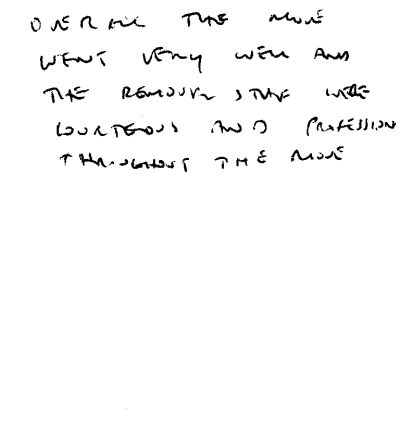 OVERALL THE MOVE
WENT VERY WELL AND
THE REMOVAL STAFF WERE
COURTEOUS AND PROFESSION
THROUGHOUT THE MOVE